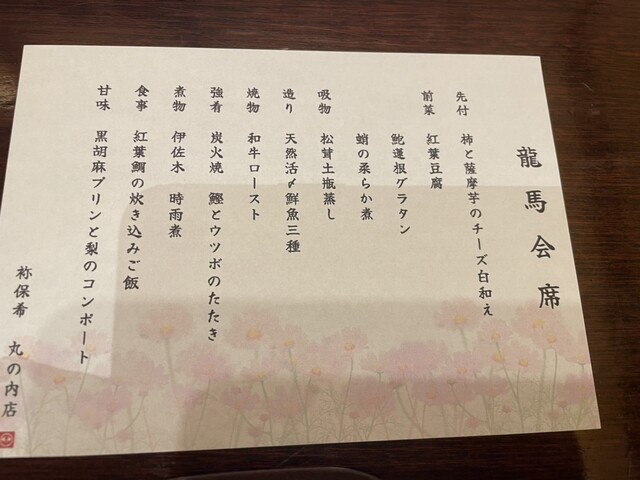 龍馬会席
先付 柿と薩摩芋のチーズ白和え
前菜 紅葉豆腐
鮑蓮根グラタン
蛸の柔らか煮
吸物 松茸土瓶蒸し
造り 天然活〆鮮魚三種
焼物 和牛ロースト
強肴 炭火焼 鰹とウツボのたたき
煮物 伊佐木 時雨煮
食事 紅葉鯛の炊き込みご飯
甘味 黒胡麻プリンと梨のコンポート
祢保希 丸の内店